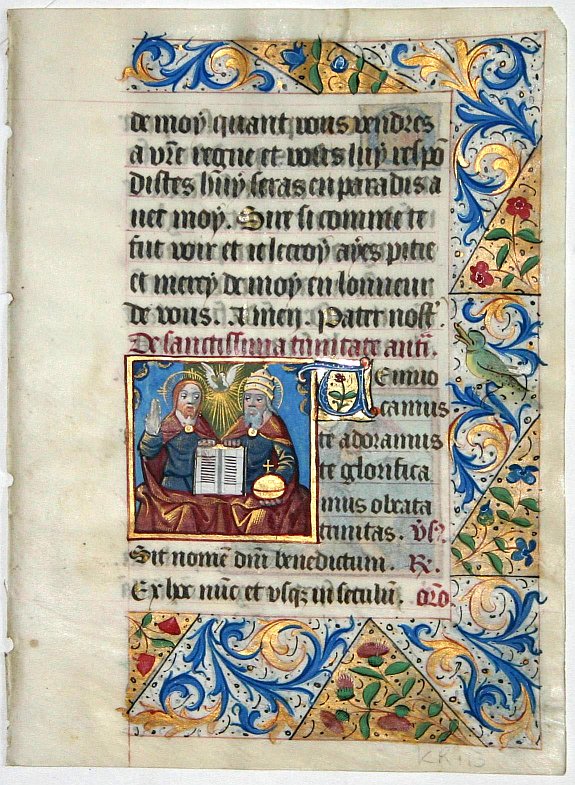 de moy quant vous vendres
a vr̃e regne et vous luy respõ
distes huy seras en paradis a
uec moy. Sire si comme ce
fut voir et ie le croy ayes pitie
et mercy de moy en lonneur
de vous. Amen. Pater nost̃.
De sanctissima trinitate anti.
Te inuo
camus
te adoramus
te glorifica
mus o beata
trinitas. v̉s.
Sit nomẽ dñi benedictum. R.
Ex hoc nũc et usq; in seculũ. orõ